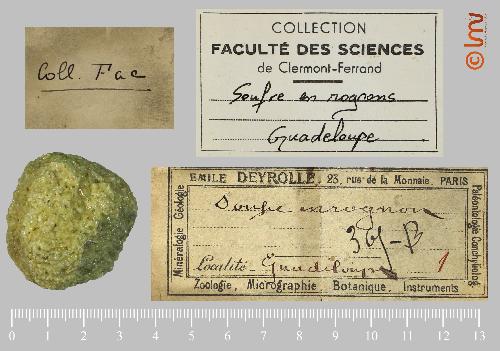 Coll. Fac
COLLECTION
FACULTÉ DES SCIENCES
de Clermont-Ferrand
Soufre en rognons
Guadeloupe
© lmv
EMILE DEYROLLE, 23, rue de la Monnaie, PARIS
Minéralogie Géologie
Soufre en rognon
365-B
Localité Guadeloupe
1
Paléontologie Conchyliologie
Zoologie, Micrographie Botanique, Instruments
0 1 2 3 4 5 6 7 8 9 10 11 12 13